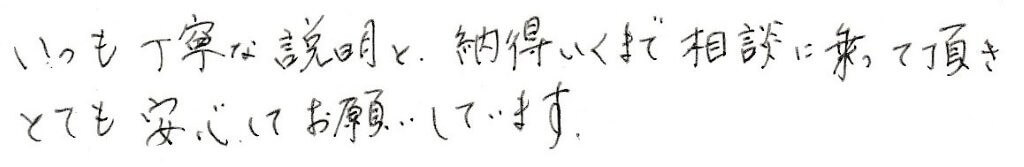 いつも丁寧な説明と、納得いくまで相談に乗って頂き
とても安心してお願いしています。